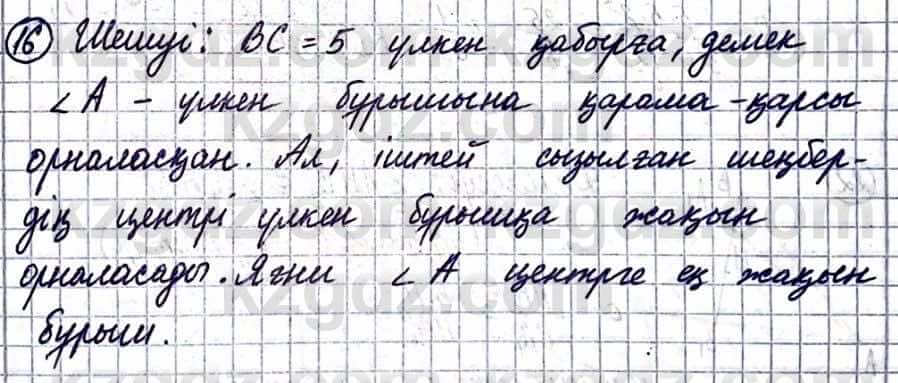 16 Шешуі: BC = 5 үлкен қабырға, демек
∠A - үлкен бұрышына қарама-қарсы
орналасқан. Ал, іштей сызылған шеңбер-
дің центрі үлкен бұрышқа жақын
орналасады. Яғни ∠A центрге ең жақын
бұрыш.